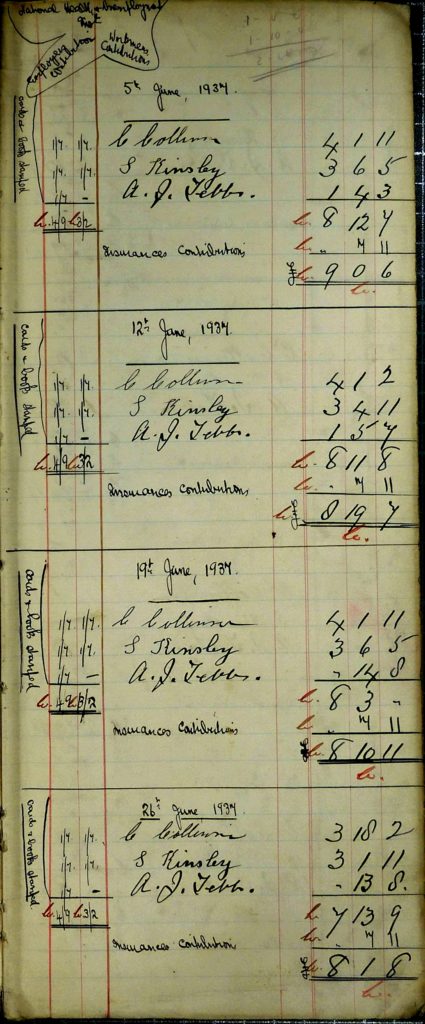 National Health & Unemployment
Employers Contribution
Workmens Contributions
5th June, 1937.
cards & books stamped
1/7. 1/7. C Collinson 4 1 11
1/7. 1/7. S Kinsley 3 6 5
1/7 – A. J. Tebbs. 1 4 3
4 9 3 2 8 12 7
Insurances Contributions " 7 11
9 0 6
12th June, 1937.
cards & books stamped
1/7. 1/7. C Collinson 4 1 2
1/7. 1/7. S Kinsley 3 4 11
1/7 – A. J. Tebbs. 1 5 7
4 9 3 2 8 11 8
Insurances Contributions " 7 11
8 19 7
19th June, 1937.
cards & books stamped
1/7. 1/7. C Collinson 4 1 11
1/7. 1/7. S Kinsley 3 6 5
1/7 – A. J. Tebbs. - 14 8
4 9 3 2 8 3 -
Insurances Contributions " 7 11
8 10 11
26th June 1937
cards & books stamped
1/7. 1/7. C Collinson 3 18 2
1/7. 1/7. S Kinsley 3 1 11
1/7 – A. J. Tebbs. - 13 8.
4 9 3 2 7 13 9
Insurances Contribution " 7 11
8 1 8